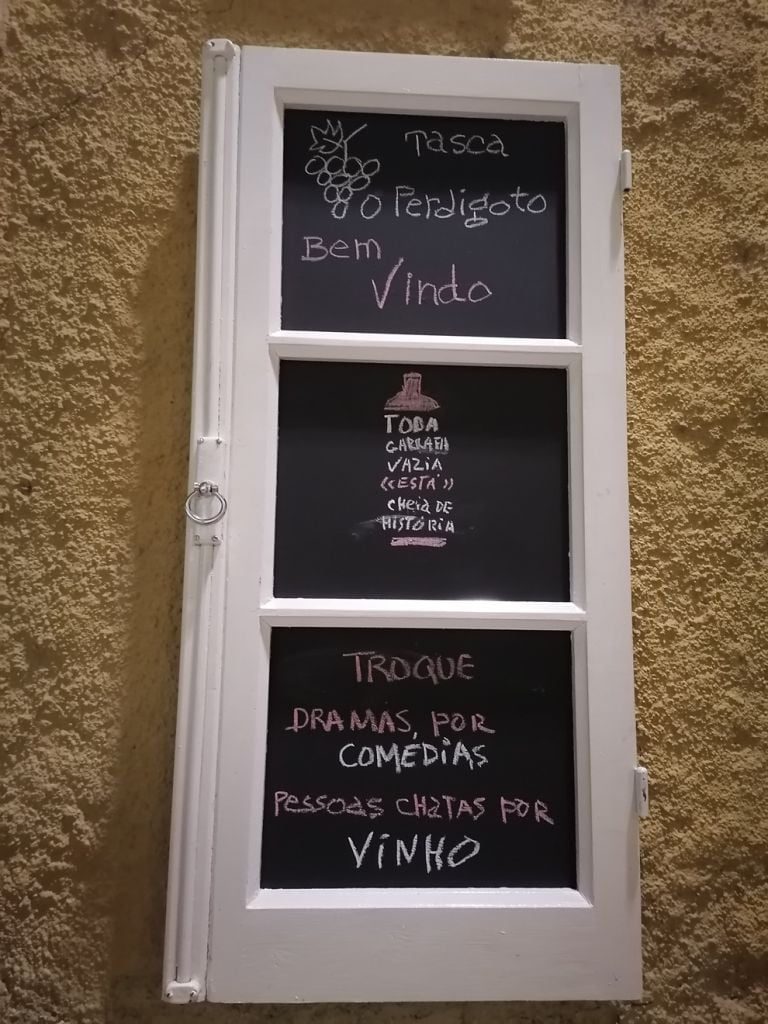 Tasca
O Perdigoto
Bem
Vindo
TODA
GARRAFA
VAZIA
«ESTÁ»
cheia DE
HISTÓRIA
TROQUE
DRAMAS, POR
COMÉDIAS
PESSOAS CHATAS POR
VINHO